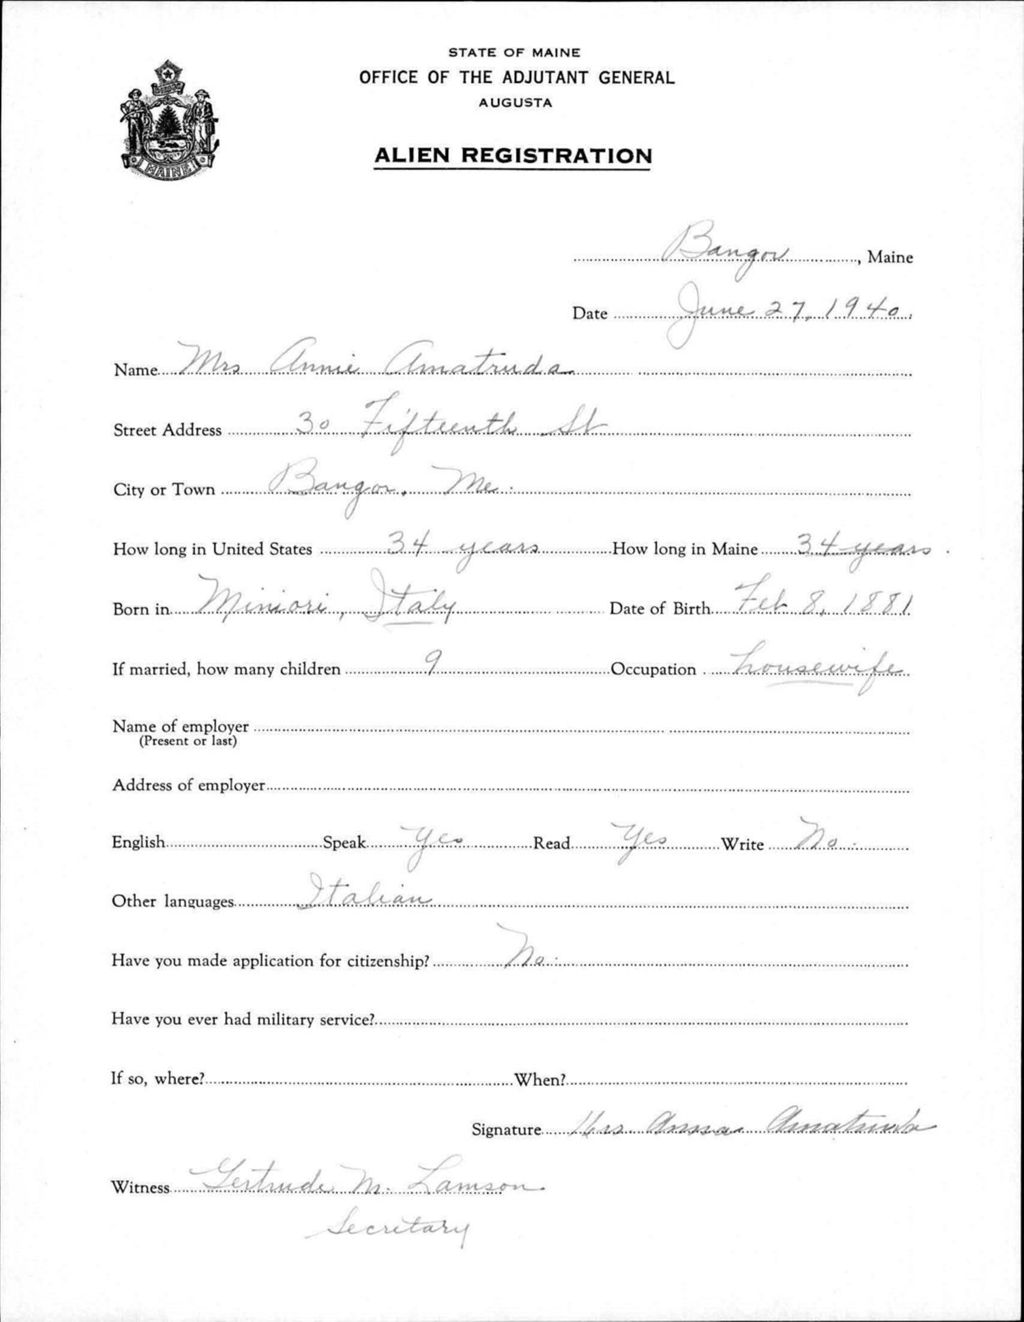 STATE OF MAINE
OFFICE OF THE ADJUTANT GENERAL
AUGUSTA
ALIEN REGISTRATION
MAINE
Bangor, Maine
Date June 27, 1940.
Name Mrs Annie Amatruda
Street Address 30 Fifteenth St
City or Town Bangor, Me.
How long in United States 34 years How long in Maine 34 years.
Born in Miniori, Italy Date of Birth Feb 8, 1881
If married, how many children 9 Occupation housewife
Name of employer
(Present or last)
Address of employer
English Speak Yes Read Yes Write No.
Other languages Italian
Have you made application for citizenship? No.
Have you ever had military service?
If so, where? When?
Signature Mrs Anna Amatruda
Witness Gertrude M. Lamson
Secretary